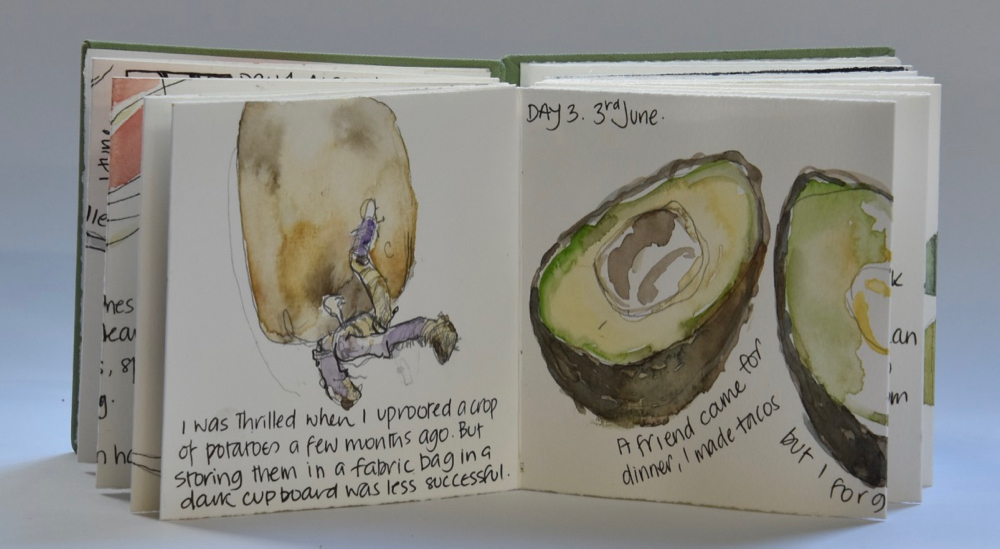 I was Thrilled when I uprooted a crop
of potatoes a few months ago. But
storing them in a fabric bag in a
dark cupboard was less successful.
DAY 3. 3rd June.
A friend came for
dinner, I made tacos
but I forg